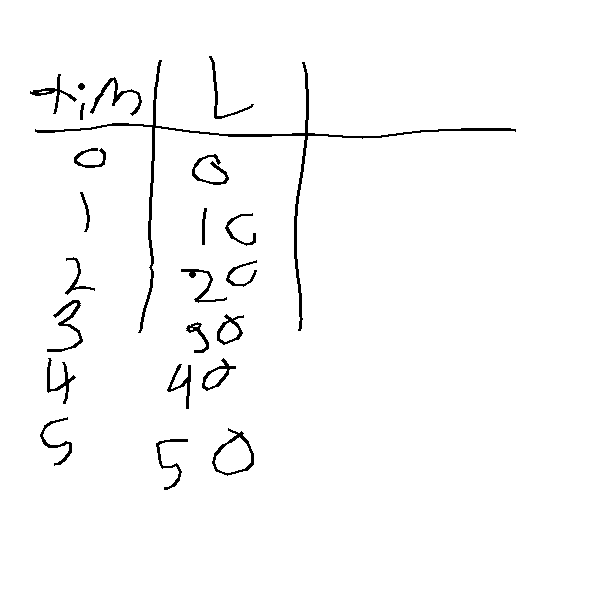 tim L
0 0
1 10
2 20
3 30
4 40
5 50